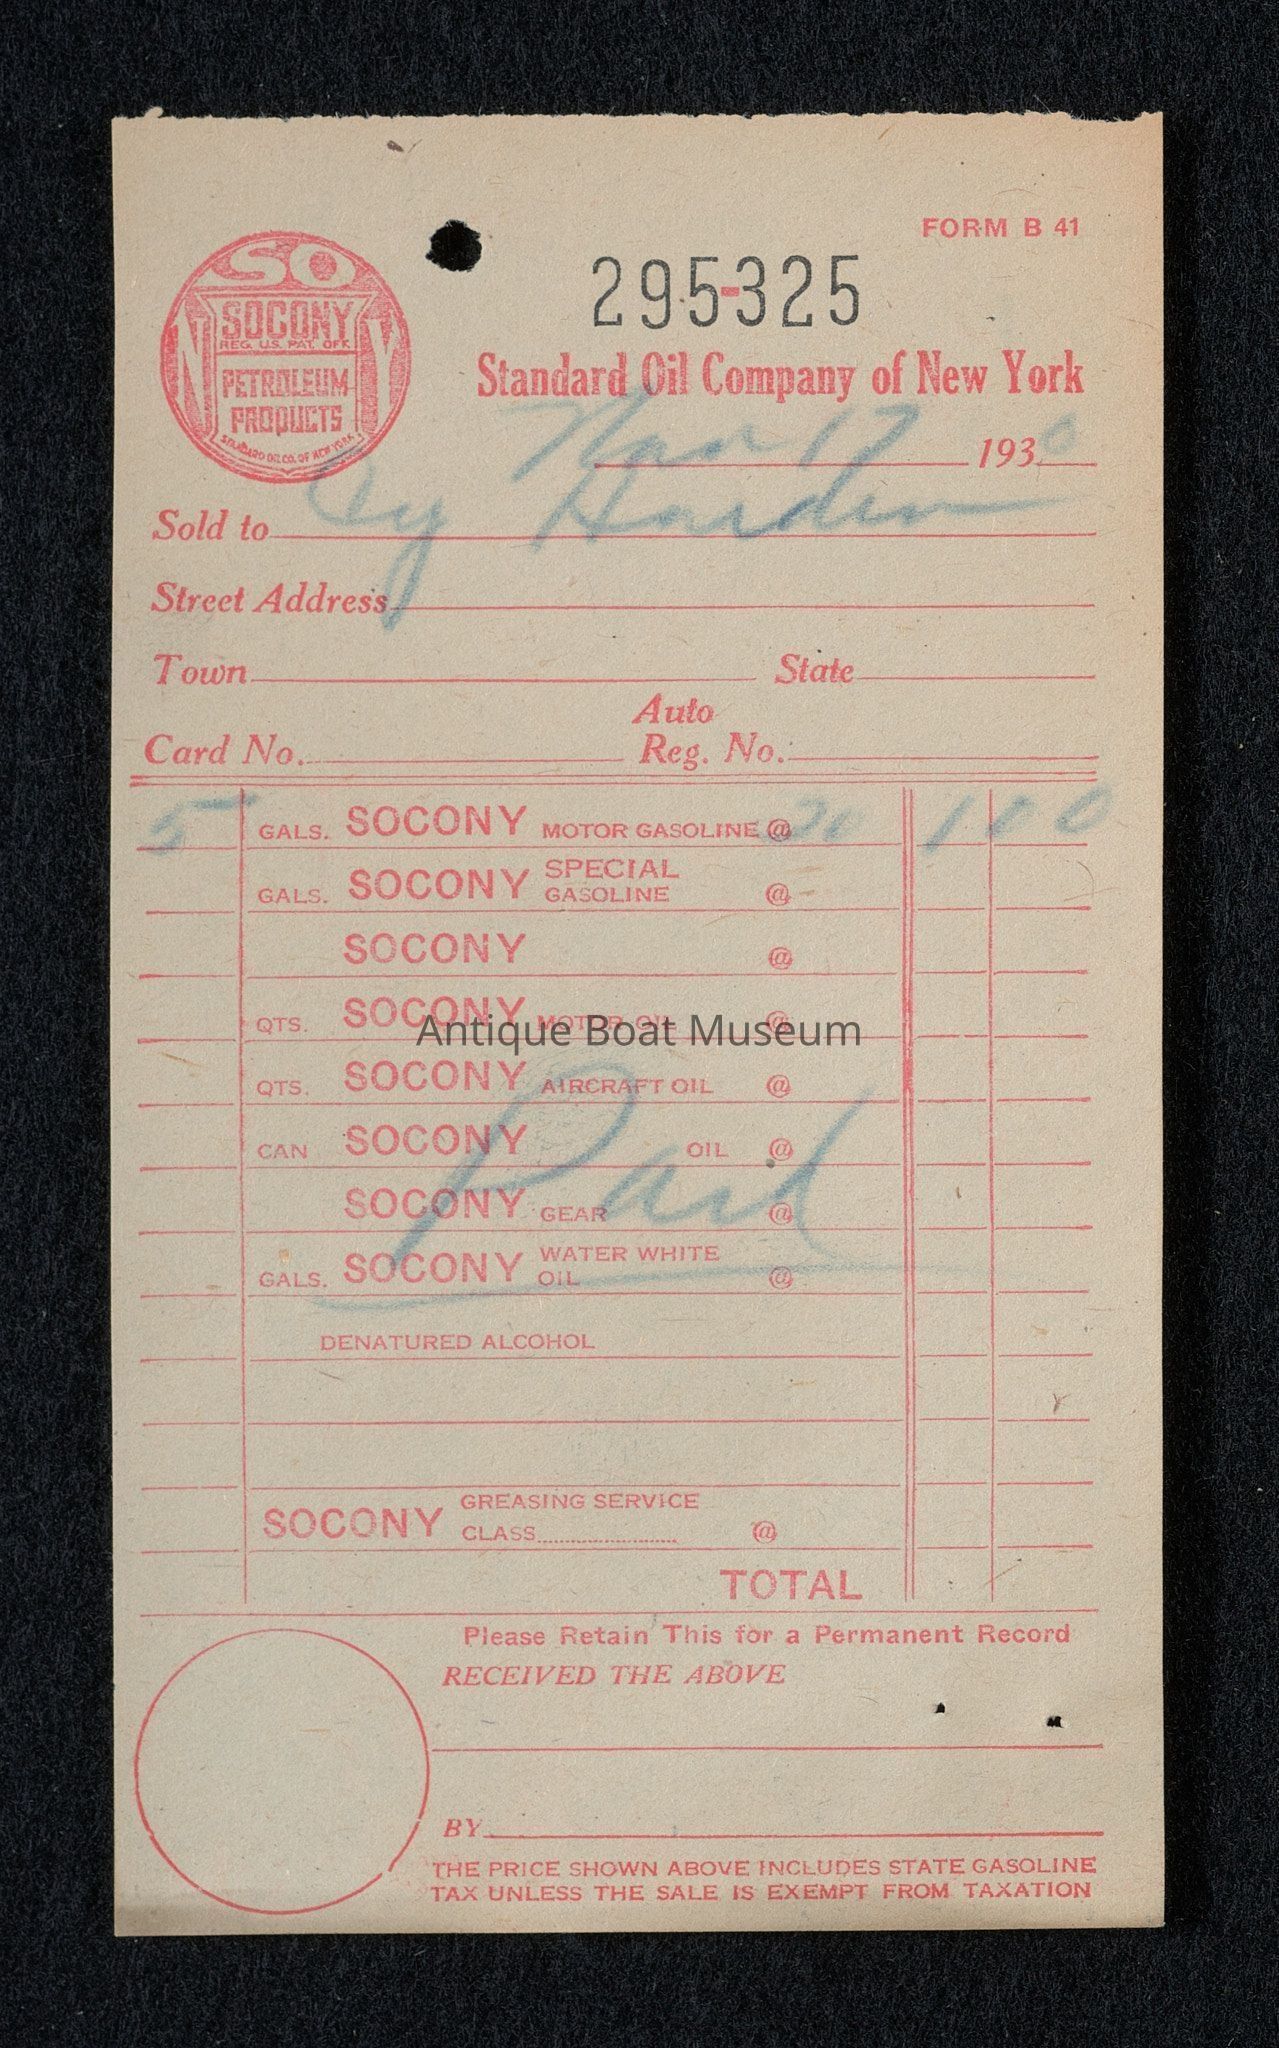 FORM B 41
295-325
SO
NY
SOCONY
REG. U.S. PAT. OFF.
PETROLEUM
PRODUCTS
STANDARD OIL CO. OF NEW YORK
Standard Oil Company of New York
17 1930
Sold to Cy Harden
Street Address
Town State
Auto
Card No. Reg. No.
5 GALS. SOCONY MOTOR GASOLINE @ 20 1 00
GALS. SOCONY SPECIAL GASOLINE @
SOCONY @
QTS. SOCONY MOTOR OIL @
Antique Boat Museum
QTS. SOCONY AIRCRAFT OIL @
CAN SOCONY OIL @
SOCONY GEAR @
GALS. SOCONY WATER WHITE OIL @
Paid
DENATURED ALCOHOL
SOCONY GREASING SERVICE
CLASS @
TOTAL
Please Retain This for a Permanent Record
RECEIVED THE ABOVE
BY
THE PRICE SHOWN ABOVE INCLUDES STATE GASOLINE
TAX UNLESS THE SALE IS EXEMPT FROM TAXATION